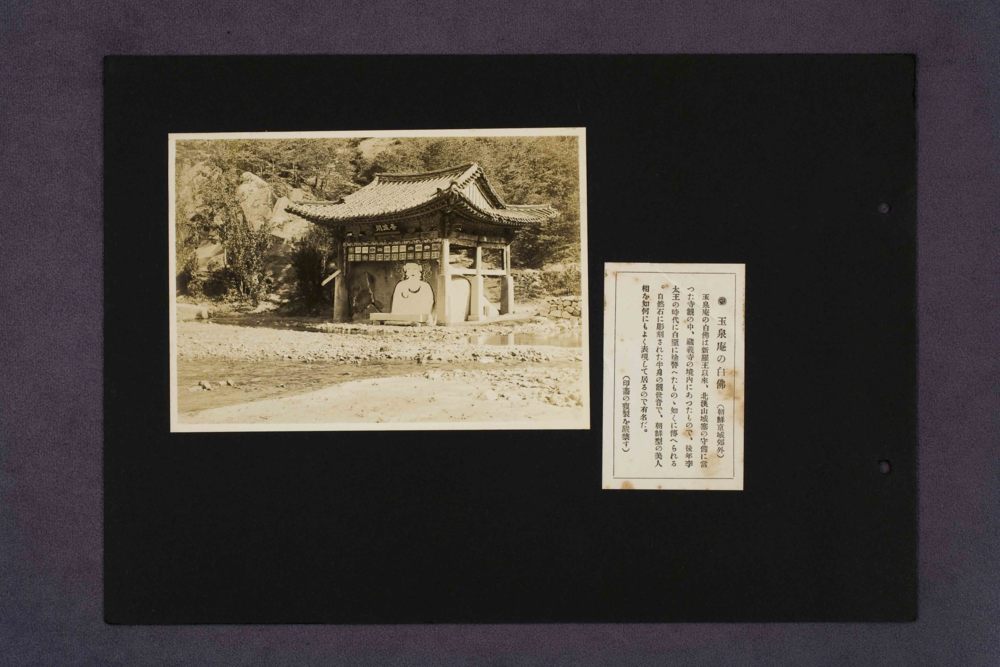 玉泉庵の白佛 (朝鮮京城郊外)
玉泉庵の白佛は新羅王以來、北漢山城寨の守備に當
つた寺觀の中、藏義寺の境内にあつたもので、後年李
太王の時代に白堊に塗替へたものゝ如くに傳へられる
。自然石に彫刻された半身の觀世音で、朝鮮型の美人
相を如何にもよく表現して居るので有名だ。
(印畫の複製を嚴禁す)